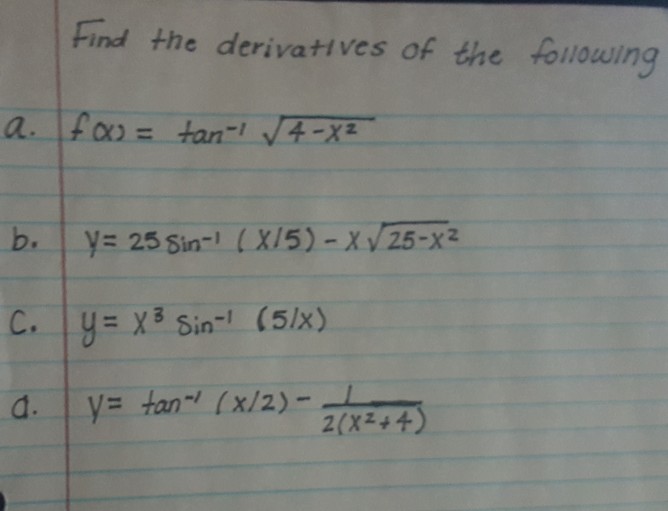 Find the derivatives of the following
a. f(x) = tan⁻¹ √(4-x²)
b. y = 25 sin⁻¹ (x/5) - x√(25-x²)
c. y = x³ sin⁻¹ (5/x)
d. y = tan⁻¹ (x/2) - 1/(2(x²+4))